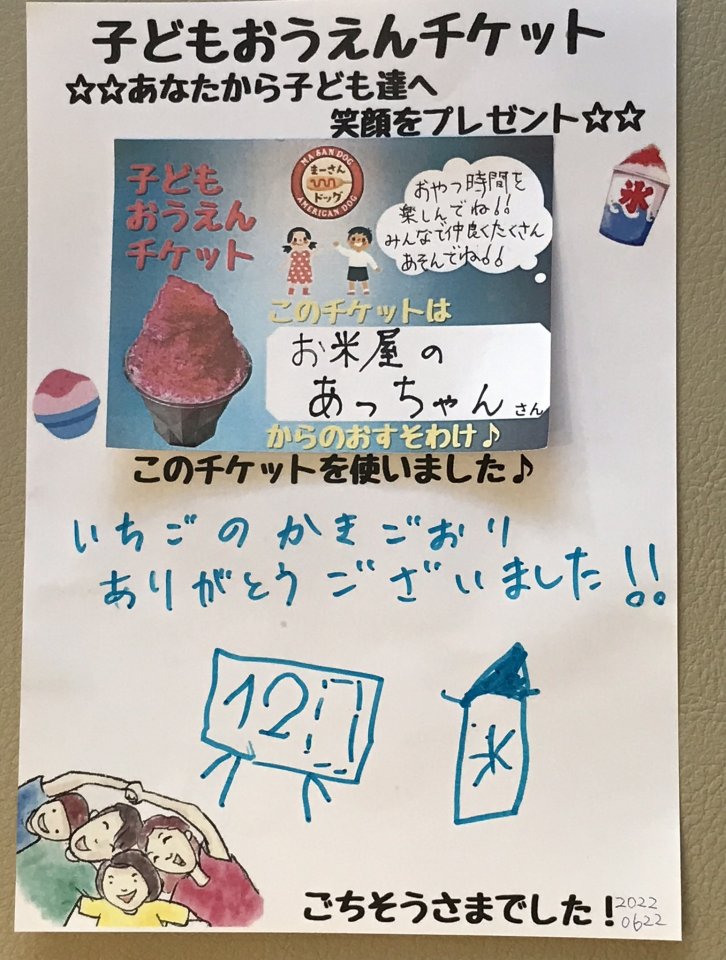 子どもおうえんチケット
☆☆あなたから子ども達へ
笑顔をプレゼント☆☆
子ども
おうえん
チケット
MA SAN DOG
まーさん
ドッグ
AMERICAN DOG
おやつ時間を
楽しんでね!!
みんなで仲良くたくさん
あそんでね!!
氷
このチケットは
お米屋の
あっちゃん さん
からのおすそわけ♪
このチケットを使いました♪
いちごのかきごおり
ありがとうございました!!
120
氷
ごちそうさまでした!
2022
0622